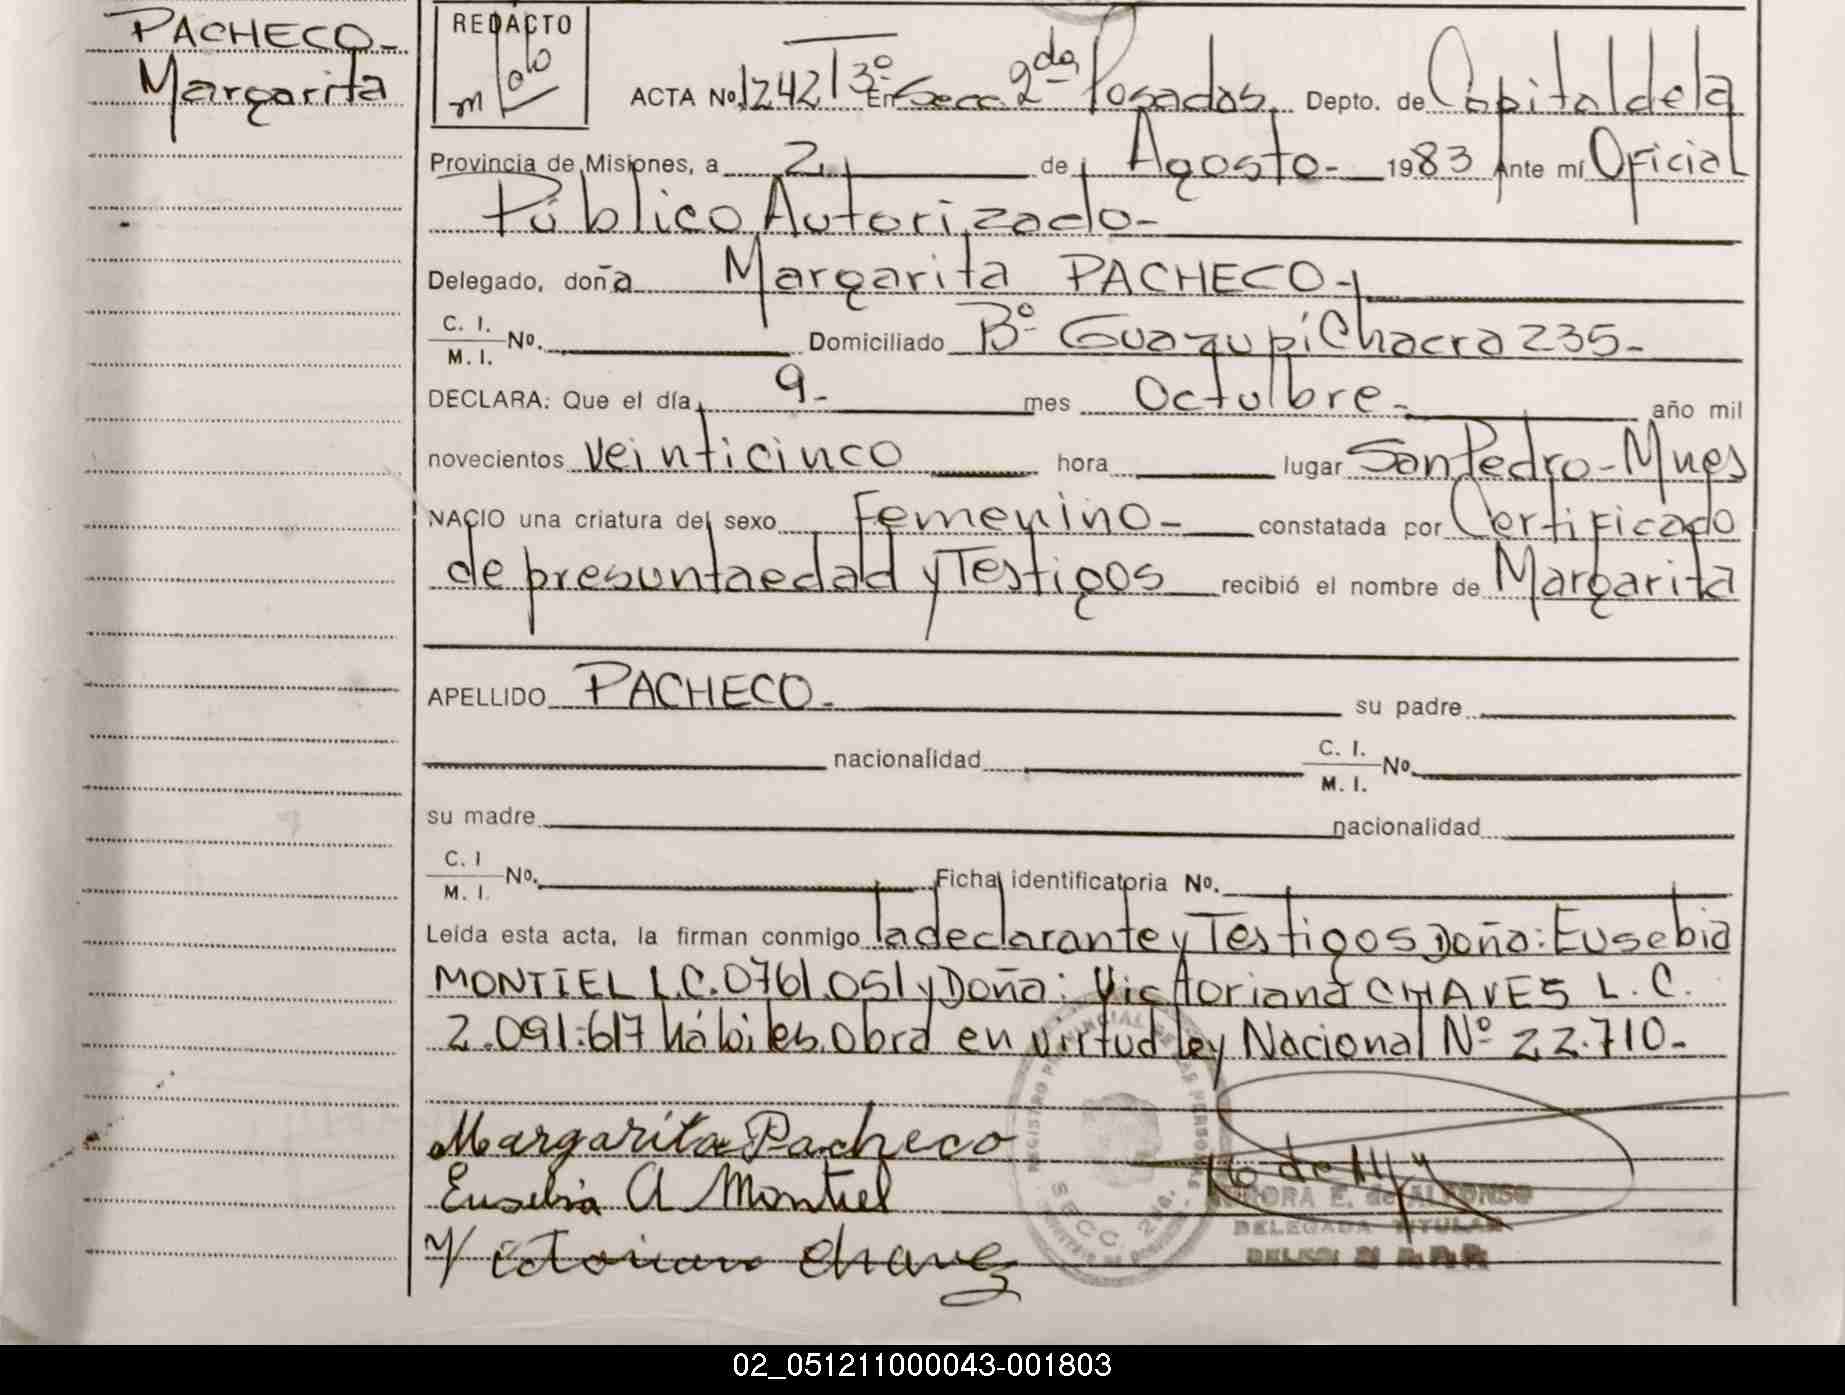 PACHECO-
Margarita
REDACTO
ACTA No. 1242 T 3º En Secc. 2da Posadas. Depto. de Capital de la
Provincia de Misiones, a 2 de Agosto- 1983 Ante mí Oficial
Público Autorizado-
Delegado, doña Margarita PACHECO-
C. I.
M. I. No. Domiciliado Bº Guazupi Chacra 235-
DECLARA: Que el día 9- mes Octulbre- año mil
novecientos veinticinco hora lugar San Pedro-Mnes
NACIO una criatura del sexo Femenino- constatada por Certificado
de presunta edad y Testigos recibió el nombre de Margarita
APELLIDO PACHECO- su padre
nacionalidad C. I.
M. I. No.
su madre nacionalidad
C. I
M. I. No. Ficha identificatoria No.
Leída esta acta, la firman conmigo la declarante y Testigos Doña: Eusebia
MONTIEL L.C. 0761.051 y Doña: Victoriana CHAVES L.C.
2.091.617 hábiles. Obra en virtud ley Nacional Nº 22.710-
Margarita Pacheco
Eusebia A Montiel
Victoriana Chavez
REGISTRO PROVINCIAL DE LAS PERSONAS
SECC. 2da.
E. de ALFONSO
DELEGADA TITULAR
02_051211000043-001803